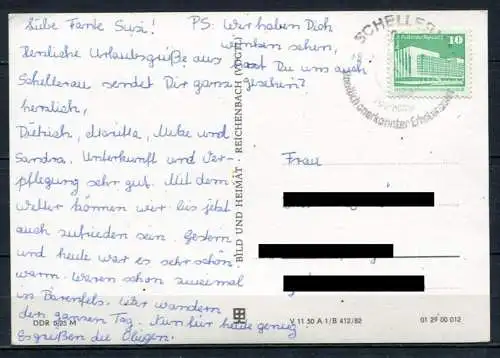 Liebe Tante Susi!
Herzliche Urlaubsgrüße aus
Schellerau sendet Dir ganz
herzlich,
Dietrich, Maritta, Meike und
Sandra. Unterkunft und Ver-
pflegung sehr gut. Mit dem
Wetter können wir bis jetzt
auch zufrieden sein. Gestern
und heute war es sehr schön
warm. Waren schon zweimal
in Bärenfels. Wir wandern
den ganzen Tag. Nun für heute genug
Es grüßen die Obigen.
PS: Wir haben Dich
winken sehen,
hast Du uns auch
gesehen?
BILD UND HEIMAT REICHENBACH (VOGTL)
SCHELLER
staatlich anerkannter Erholungsort
10
Frau
DDR 0,25 M
V 11 50 A 1/B 412/82
01 29 00 012